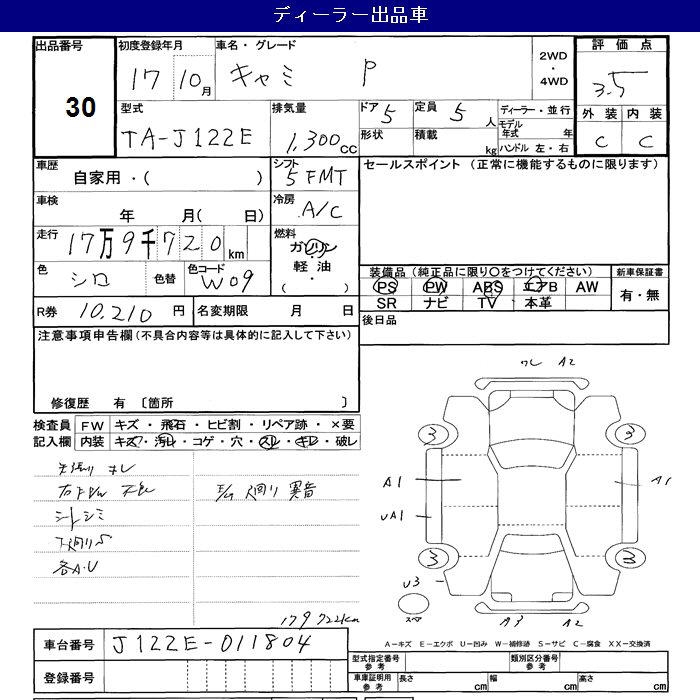 ディーラー出品車
出品番号 初度登録年月 車名・グレード 評価点
30 17 10月 キャミ P 2WD・4WD 3.5
型式 排気量 ドア 5 定員 5人 ディーラー・並行 外装 内装
TA-J122E 1,300cc 形状 積載 kg モデル年式 年 C C
ハンドル 左・右
車歴 シフト セールスポイント (正常に機能するものに限ります)
自家用・( ) 5FMT
車検 冷房
年 月( 日) A/C
走行 燃料
17万9千720km ガソリン・
色 色替 色コード 軽油・ 装備品 (純正品に限り〇をつけてください) 新車保証書
シロ W09 ( ) PS PW ABS エアB AW 有・無
SR ナビ TV 本革
R券 10,210円 名変期限 月 日 後日品
注意事項申告欄 (不具合内容等は具体的に記入して下さい)
修復歴 有 〔箇所 〕
検査員 FW キズ・飛石・ヒビ割・リペア跡・×要
記入欄 内装 キズ・汚れ・コゲ・穴・スレ・キレ・破レ
ワレ A2
3 3
A1 A1
UA1
3 3
U3
スペア
A3 A2
下廻りS
各A.U
E/G 廻り 異音
179722km
A-キズ E-エクボ U-凹み W-補修跡 S-サビ C-腐食 XX-交換済
車台番号 J122E-011804
登録番号
型式指定番号 参考 類別区分番号 参考
車庫証明用 参考 長さ cm 幅 cm 高さ cm